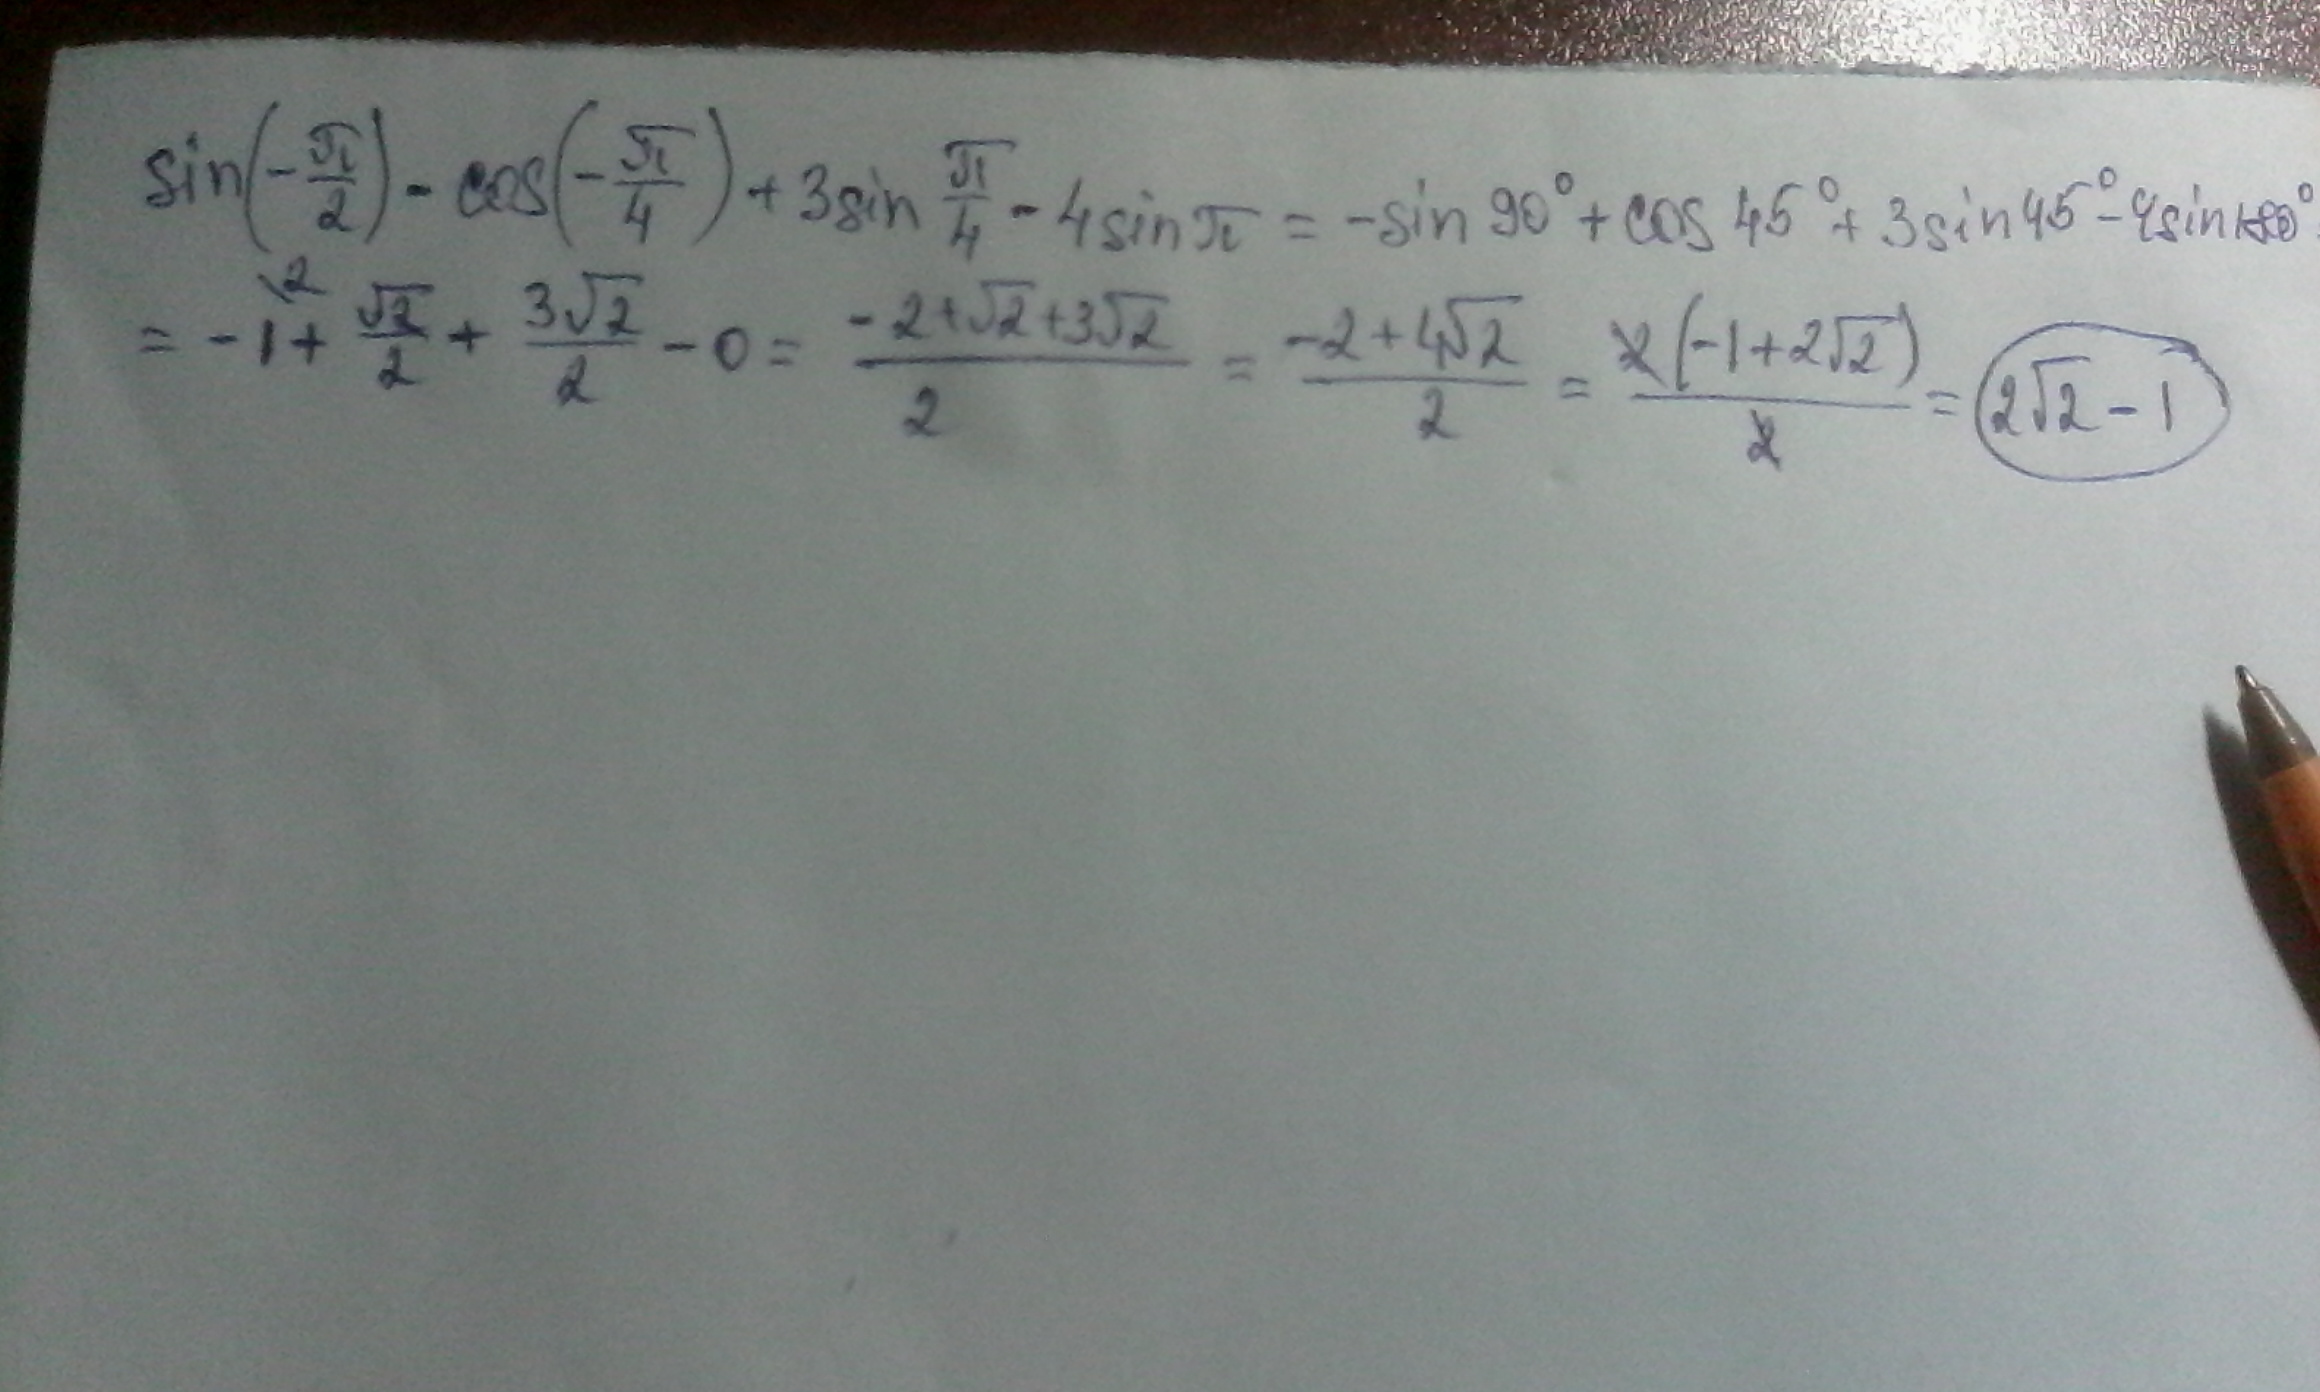 sin(-π/2) - cos(-π/4) + 3sin π/4 - 4sinπ = -sin 90° + cos 45° + 3sin45° - 4sin180°
= -1\2 + √2/2 + 3√2/2 - 0 = (-2+√2+3√2)/2 = (-2+4√2)/2 = 2(-1+2√2)/2 = 2√2 - 1